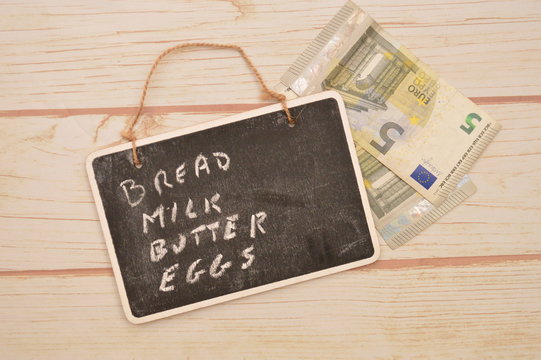 BREAD
MILK
BUTTER
EGGS
5
EURO
5